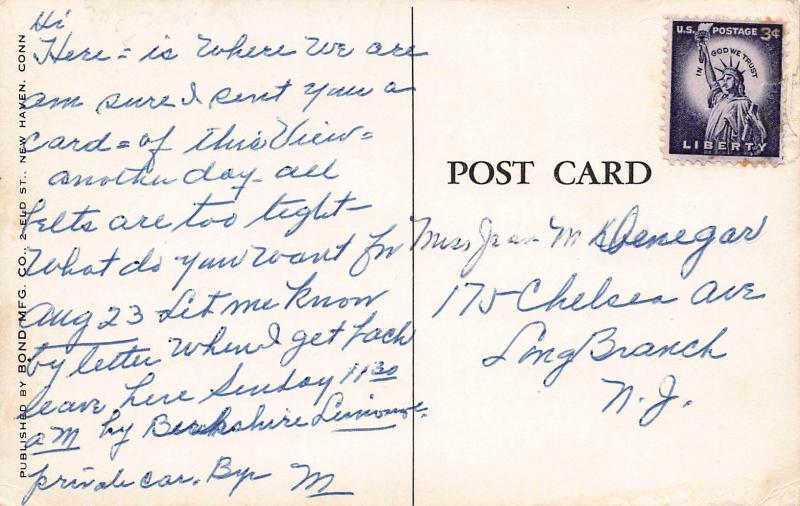 Hi
Here = is Where We are
am sure I sent you a
card = of this View =
another day - all
belts are too tight -
What do you want for
Aug 23 Let me know
by letter When I get back
leave here Sunday 11 30
a M by Berkshire Limousine
private car. By M
PUBLISHED BY BOND MFG. CO., 2 ELD ST., NEW HAVEN, CONN
U.S. POSTAGE 3¢
IN GOD WE TRUST
LIBERTY
POST CARD
Miss Jean M Denegar
175 Chelsea Ave
Long Branch
N. J.